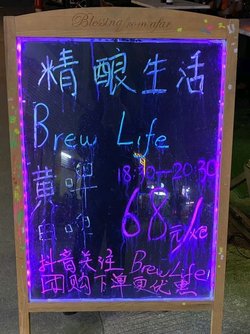 Blessing from afar
精酿生活
Brew Life
黄啤 18:30-20:30
白啤 68元/ke
抖音关注 BrewLife
团购下单更优惠